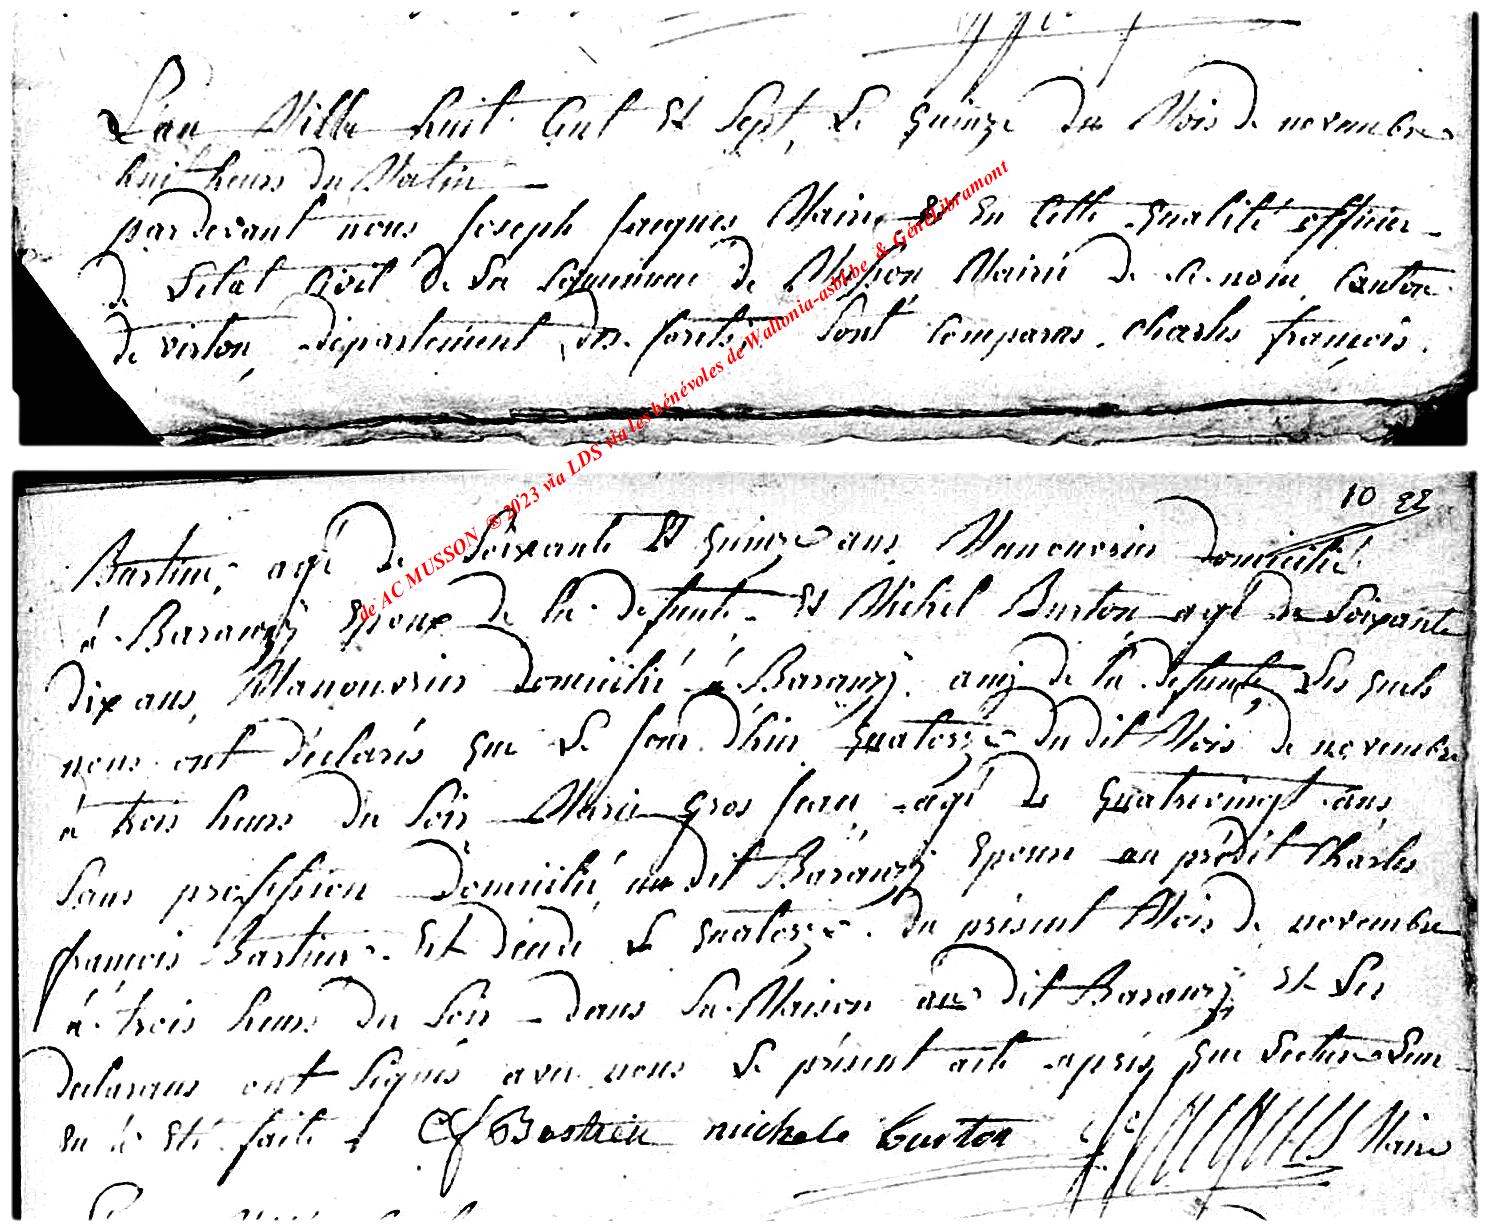 L'an Mille huit Cent Et Sept, Le quinze du Mois de novembre
huit heurs du Matin
pardevant nous Joseph Jacques Maire Et En Cette qualité officier
de Letat Civil de La Commune de Musson Mairie de Ce nom, Canton
de virton, département des forets, Sont Comparus Charles françois
10 22
Bastien, agé de Soixante Et quinze ans Manouvrier domicilié
à Baranzÿ Epoux de la defunte Et Michel Burton agé de Soixante
dix ans, Manouvrier domicilié à Baranzÿ, amÿ de la defunte, Les quels
nous ont déclarés que Le Jour d'hier quatorze du dit Mois de novembre
à trois heurs du Soir Marie gros Jean agé de quatrevingt ans,
Sans profession domicilié au dit Baranzÿ Epouse au prédit Charles
françois Bastien Est decedé Le quatorze du présent Mois de novembre
à trois heurs du Soir dans Sa Maison au dit Baranzÿ Et Les
declarans ont Signés avec nous Le présent acte après que Lecture Leur
en a Eté faite CF Bastien michele burton JJacques Maire
de AC MUSSON ® 2023 via LDS via les bénévoles de Wallonia-asbl.be & GénéLibramont